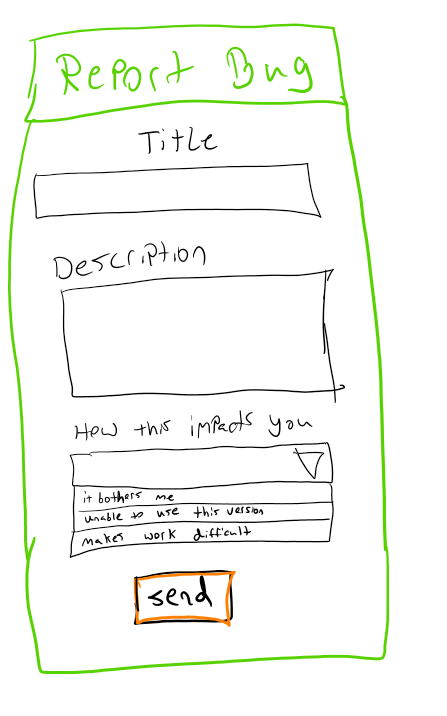 Report Bug
Title
Description
How this impacts you
it bothers me
unable to use this version
makes work difficult
send